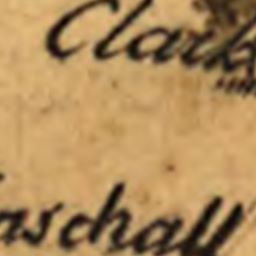 Clark
aschall